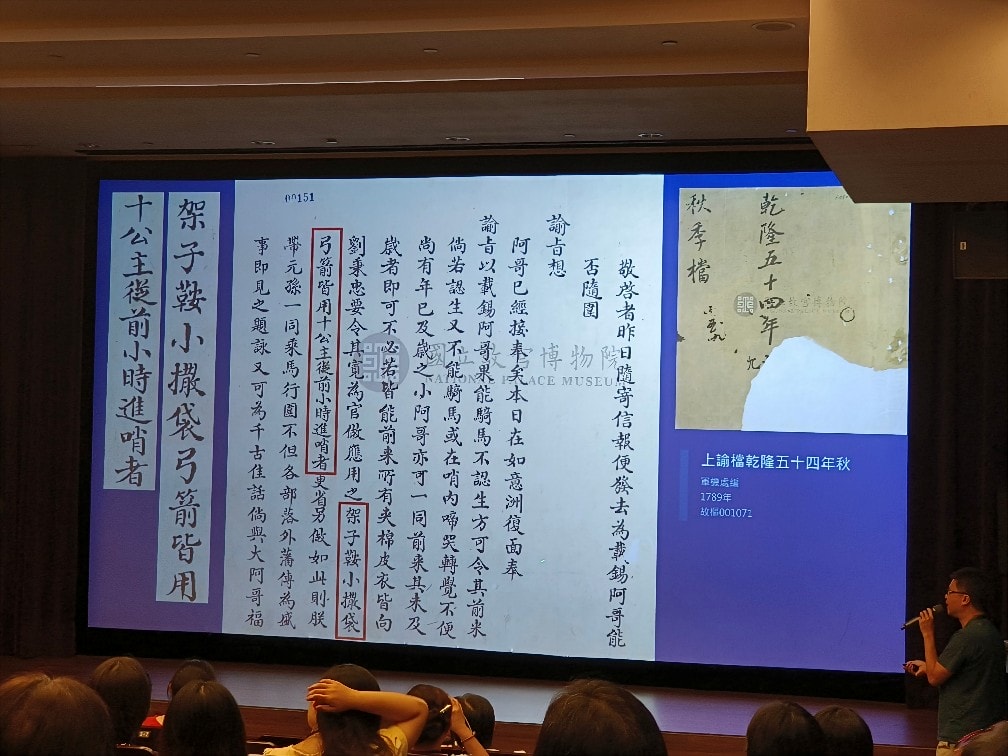 乾隆五十四年
秋季檔
上諭檔乾隆五十四年秋
軍機處編
1789年
故樞001071
00151
敬啓者昨日隨寄信報便發去為載錫阿哥能
否隨圍
諭旨想
阿哥已經接奉矣本日在如意洲復面奉
諭旨以載錫阿哥果能騎馬不認生方可令其前来
倘若認生又不能騎馬或在哨内啼哭轉覺不便
尚有年已及歲之小阿哥亦可一同前来其未及
歲者即可不必若皆能前来所有夹棉皮衣皆向
劉秉忠要令其寬為官做應用之架子鞍小撒袋
弓箭皆用十公主從前小時進哨者更省另做如此則朕
帶元孫一同乘馬行圍不但各部落外藩傳為盛
事即見之題詠又可為千古佳話倘與大阿哥福
架子鞍小撒袋弓箭皆用
十公主從前小時進哨者
國立故宮博物院
NATIONAL PALACE MUSEUM
故宮博物院